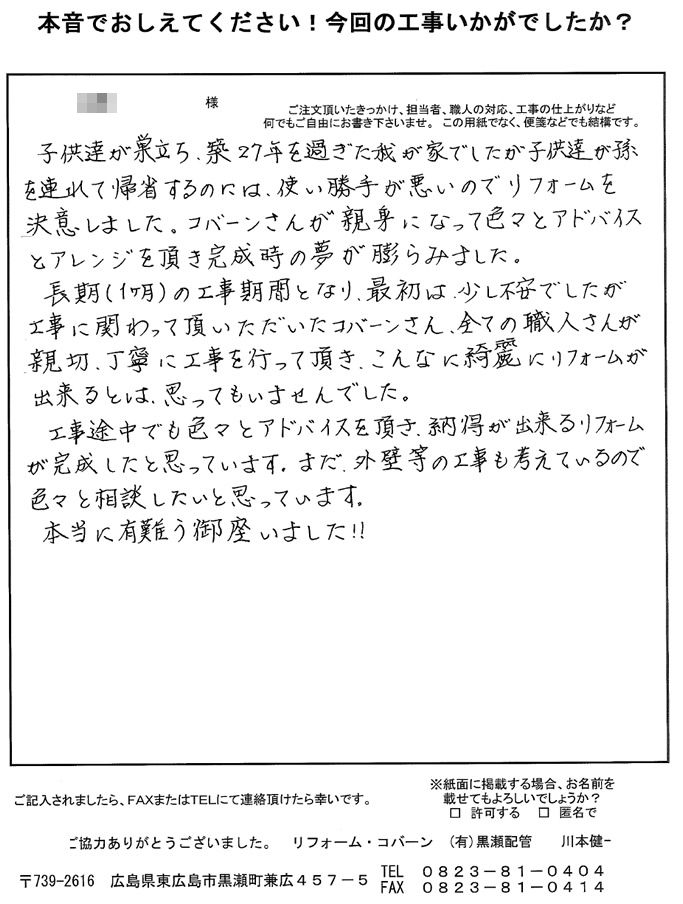 本音でおしえてください！今回の工事いかがでしたか？
様
ご注文頂いたきっかけ、担当者、職人の対応、工事の仕上がりなど
何でもご自由にお書き下さいませ。この用紙でなく、便箋などでも結構です。
子供達が巣立ち、築27年を過ぎた我が家でしたが子供達が孫
を連れて帰省するのには、使い勝手が悪いのでリフォームを
決意しました。コバーンさんが親身になって色々とアドバイス
とアレンジを頂き完成時の夢が膨らみました。
長期(1ヶ月)の工事期間となり、最初は、少し不安でしたが
工事に関わって頂いただいたコバーンさん、全ての職人さんが
親切、丁寧に工事を行って頂き、こんなに綺麗にリフォームが
出来るとは、思ってもいませんでした。
工事途中でも色々とアドバイスを頂き、納得が出来るリフォーム
が完成したと思っています。まだ、外壁等の工事も考えているので
色々と相談したいと思っています。
本当に有難う御座いました!!
※紙面に掲載する場合、お名前を
載せてもよろしいでしょうか？
□ 許可する □ 匿名で
ご記入されましたら、FAXまたはTELにて連絡頂けたら幸いです。
ご協力ありがとうございました。 リフォーム・コバーン (有)黒瀬配管 川本健一
〒739-2616 広島県東広島市黒瀬町兼広４５７－５
TEL ０８２３－８１－０４０４
FAX ０８２３－８１－０４１４